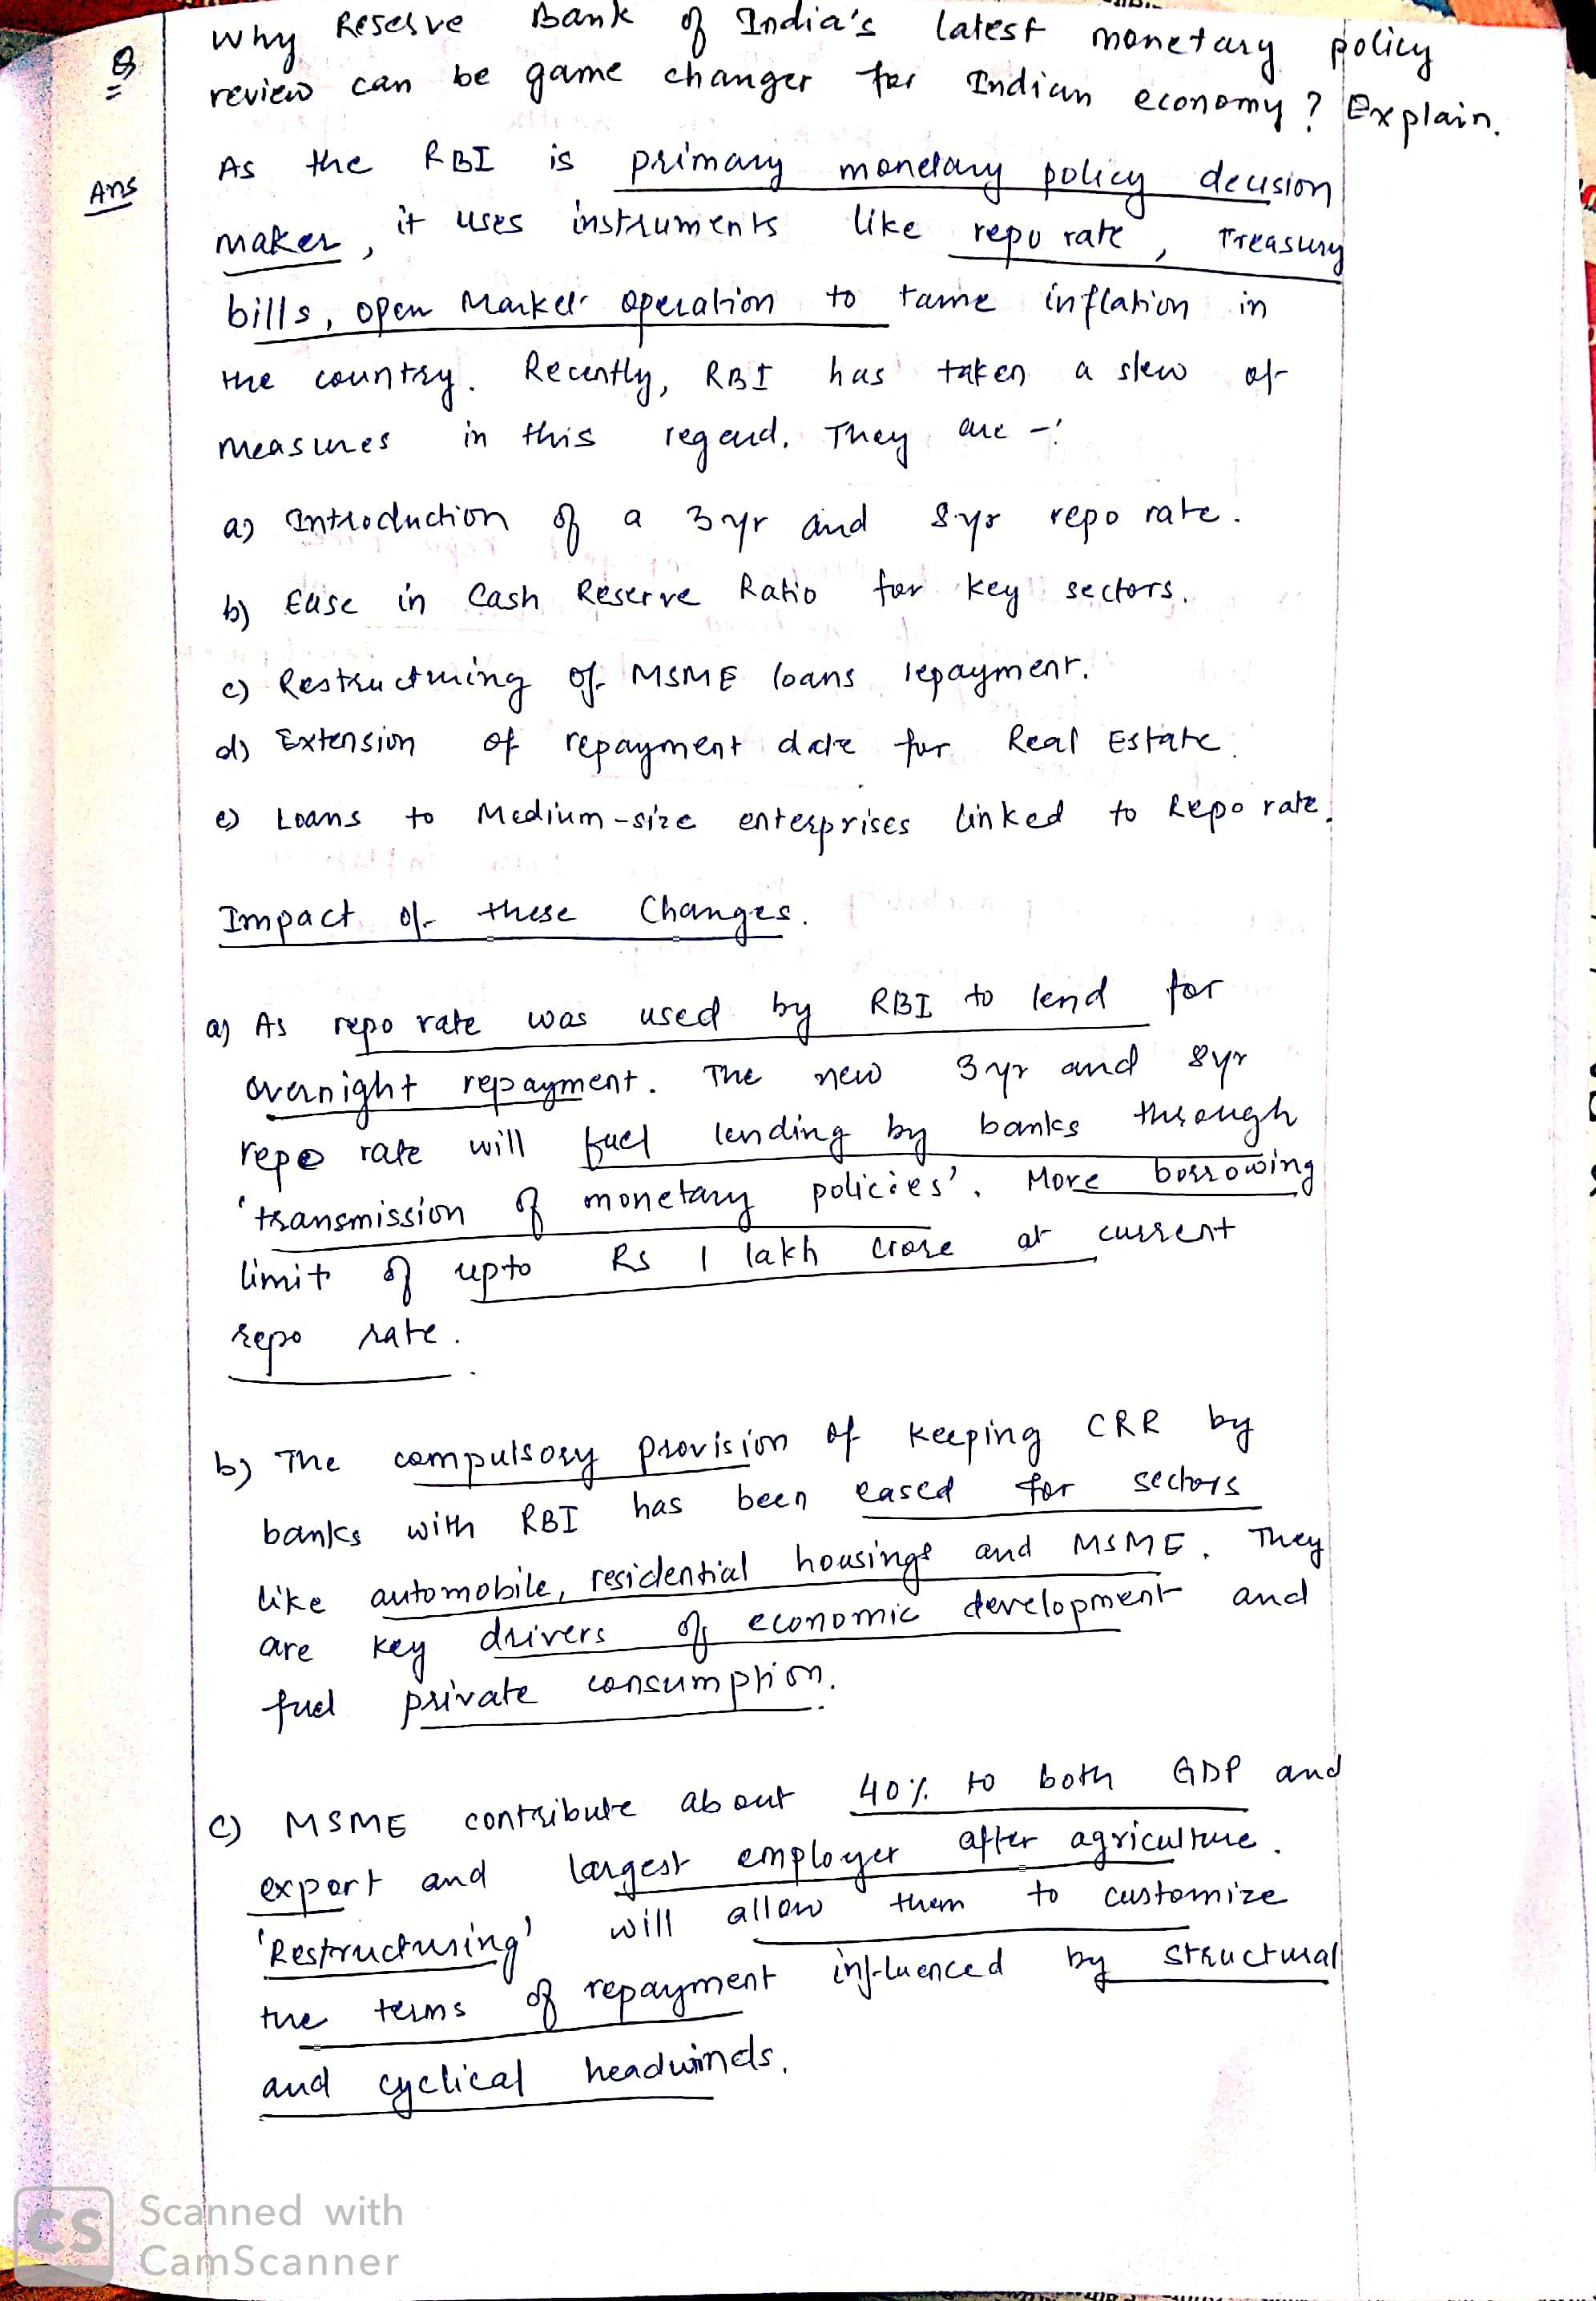 Q Why Reserve Bank of India's latest monetary policy
review can be game changer for Indian economy? Explain.
Ans As the RBI is primary monetary policy decision
maker, it uses instruments like repo rate, Treasury
bills, open Market operation to tame inflation in
the country. Recently, RBI has taken a slew of
measures in this regard. They are -:
a) Introduction of a 3 yr and 8 yr repo rate.
b) Ease in Cash Reserve Ratio for key sectors.
c) Restructuring of MSME loans repayment.
d) Extension of repayment date for Real Estate.
e) Loans to Medium-size enterprises linked to Repo rate.
Impact of these Changes.
a) As repo rate was used by RBI to lend for
overnight repayment. The new 3 yr and 8yr
repo rate will fuel lending by banks through
'transmission of monetary policies'. More borrowing
limit of upto Rs 1 lakh crore at current
repo rate.
b) The compulsory provision of keeping CRR by
banks with RBI has been eased for sectors
like automobile, residential housings and MSME. They
are key drivers of economic development and
fuel private consumption.
c) MSME contribute about 40% to both GDP and
export and largest employer after agriculture.
'Restructuring' will allow them to customize
the terms of repayment influenced by structural
and cyclical headwinds.
CS Scanned with
CamScanner